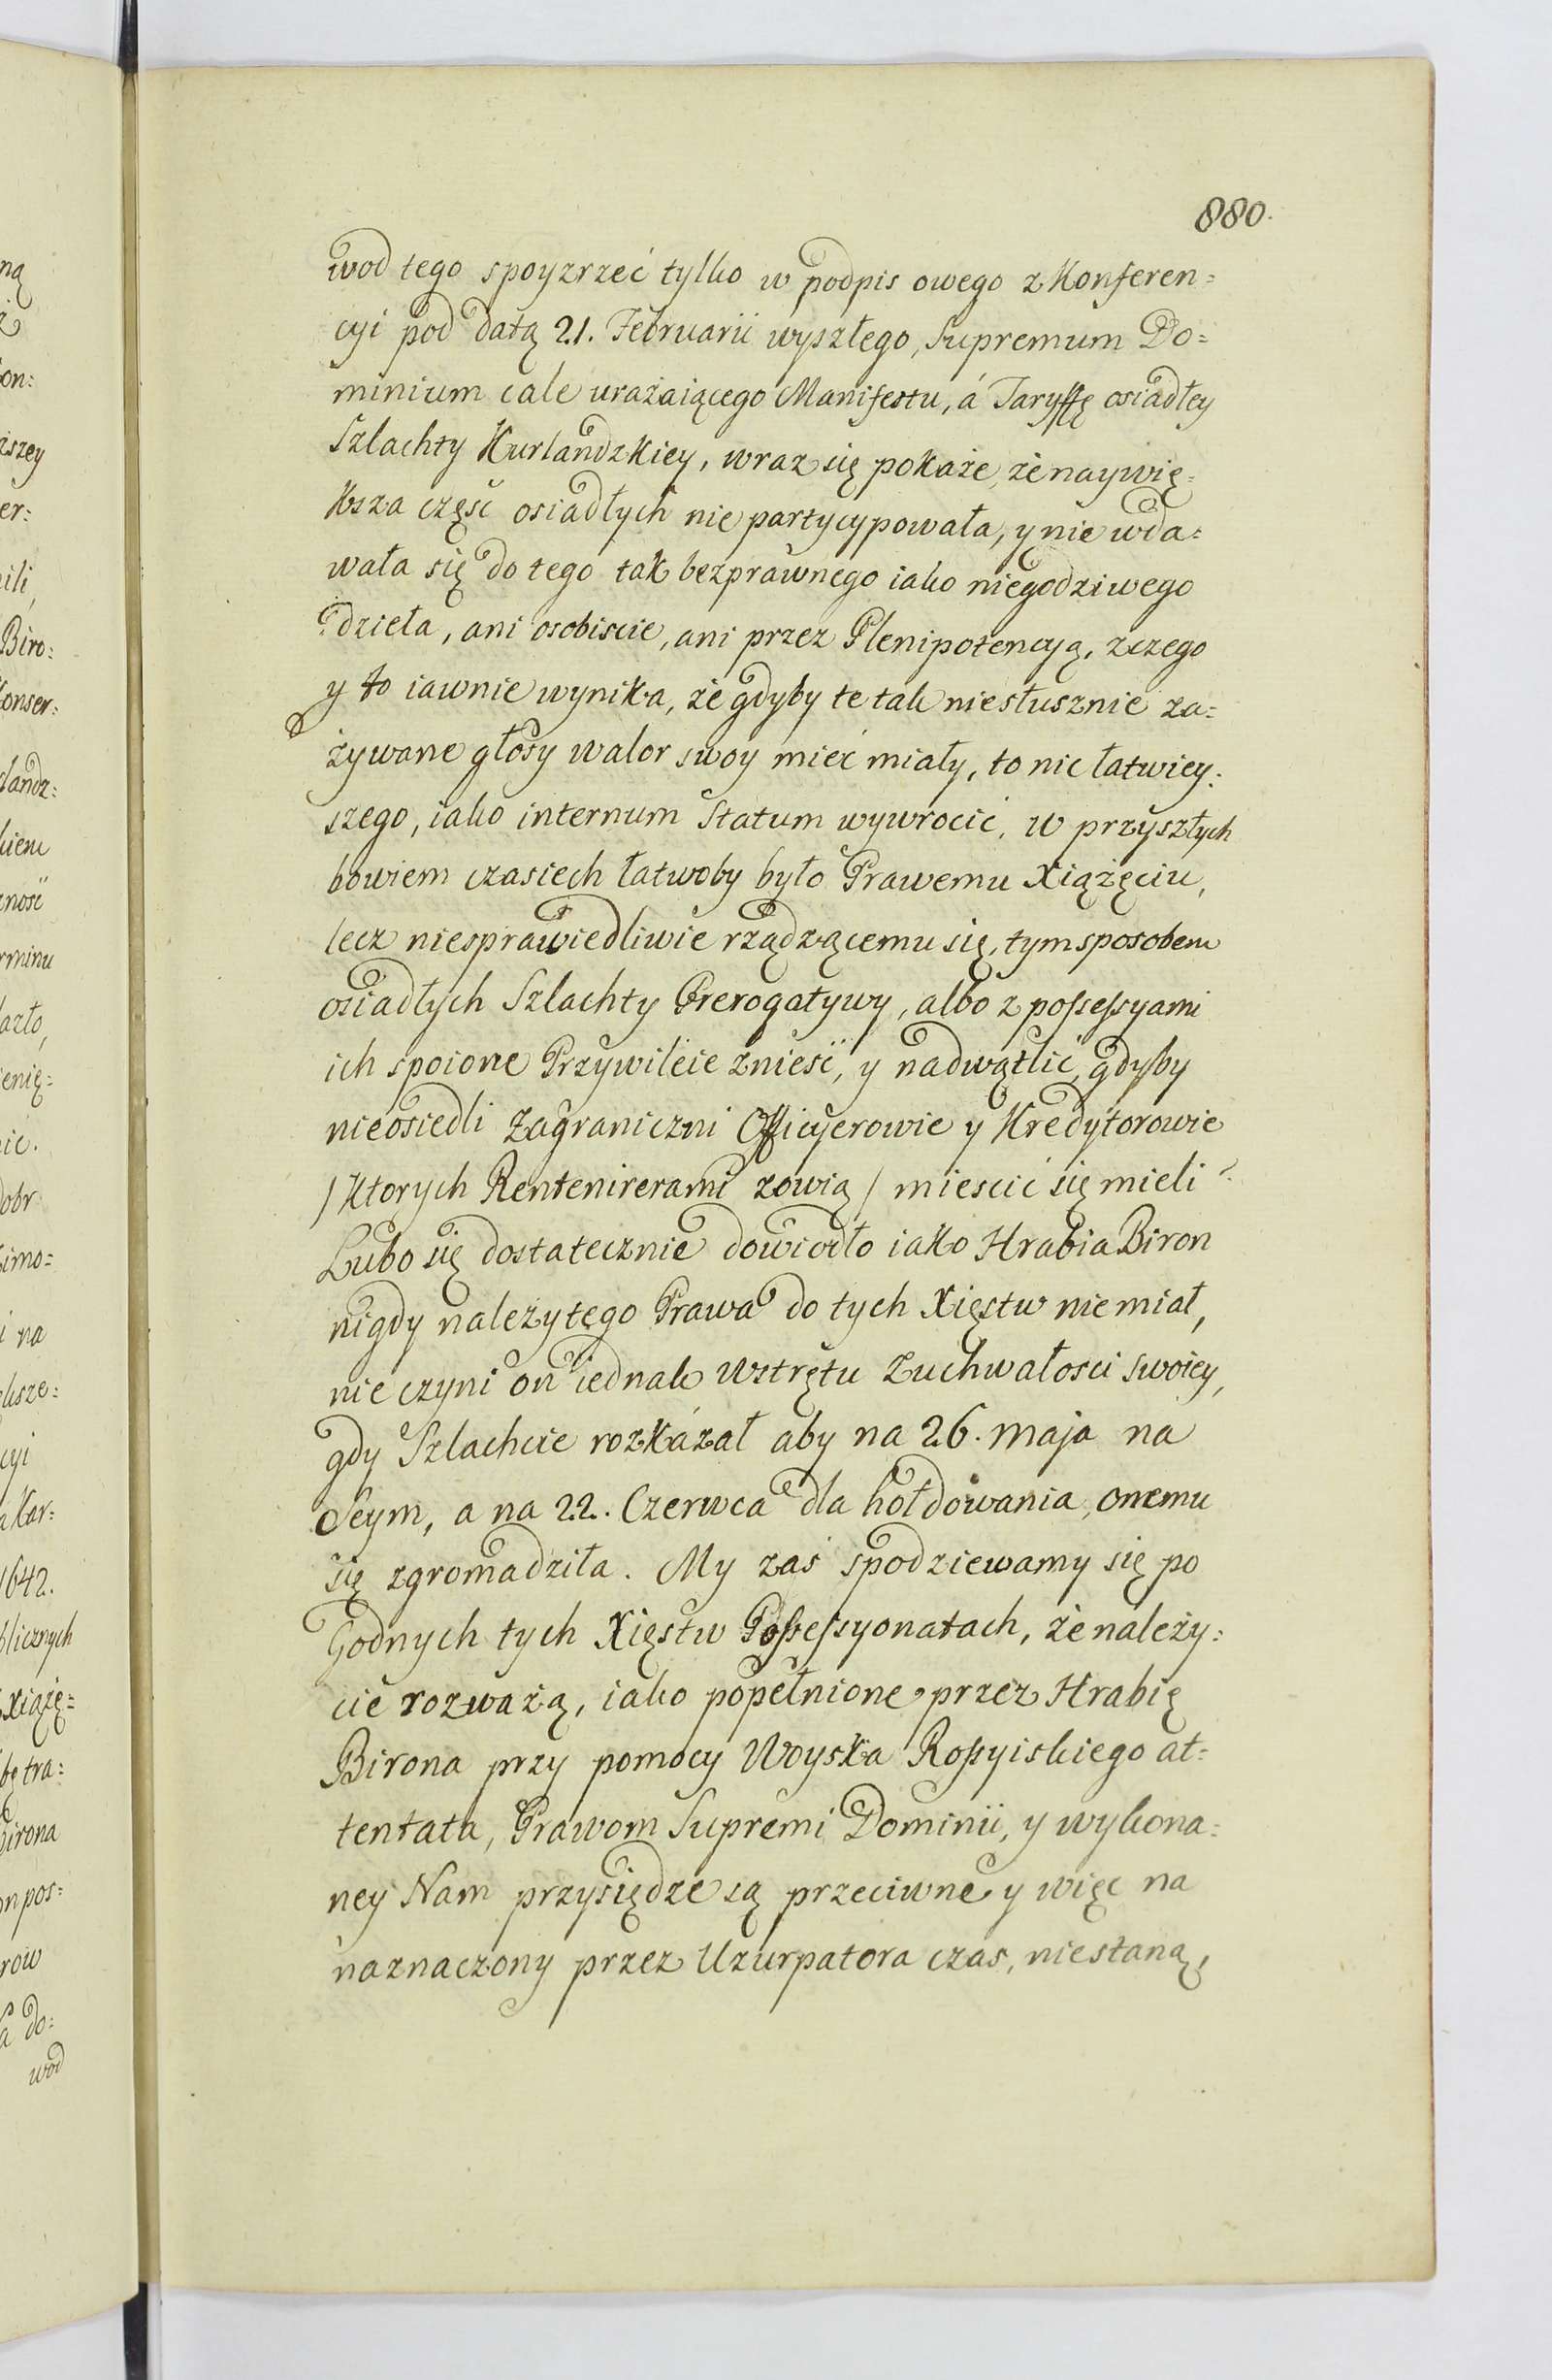 880.
wod tego spoyzrzeć tylko w podpis owego z Konferen=
cyi pod datą 21. Februarii wyszłego, Supremum Do=
minium cale urażaiącego Manifestu, á Taryffę osiadłey
Szlachty Kurlandzkiey, wraz się pokaże, że naywię=
ksza częsć osiadłych nie partycypowała, y nie wda=
wała się do tego tak bezprawnego iako niegodziwego
dzieła, ani osobiscie, ani przez Plenipotencyą, zczego
y to iawnie wynika, że gdyby te tak niesłusznie za=
żywane głosy walor swoy mieć miały, to nic łatwiey=
szego, iako internum Statum wywrocić, w przyszłych
bowiem czasiech łatwoby było Prawemu Xiążęciu,
lecz niesprawiedliwie rządzącemu się, tym sposobem
osiadłych Szlachty Prerogatywy, albo z possessyami
ich spoione Przywileie zniesć, y nadwątlić, gdyby
nieosiedli Zagraniczni Officyerowie y Kredytorowie
/ Ktorych Rentenirerami zowią / miescić się mieli
Lubo się dostatecznie dowiodło iako Hrabia Biron
nigdy należytego Prawa do tych Xięstw niemiał,
nie czyni on iednak wstrętu Zuchwałosci swoiey,
gdy Szlachcie rozkázał aby na 26. maja na
Seym, a na 22. Czerwca dla hołdowania onemu
się zgromadziła. My zaś spodziewamy się po
Godnych tych Xięstw Possessyonatach, że należy=
cie rozważą, iako popełnione przez Hrabię
Birona przy pomocy Woyska Rossyiskiego at=
tentata, Prawom Supremi Dominii, y wykona=
ney Nam przysiędze są przeciwne y więc na
naznaczony przez Uzurpatora czas, niestaną,
ną
on:
iszey
er:
ili,
Biro:
onser:
landz:
kiem
zność
rminu
azło,
enię=
ić.
dobr
imo=
i na
ksze:
cyi
a Kar:
1642.
blicznych
Xiążę=
bę tra:
Birona
on pos:
row
a do:
wod